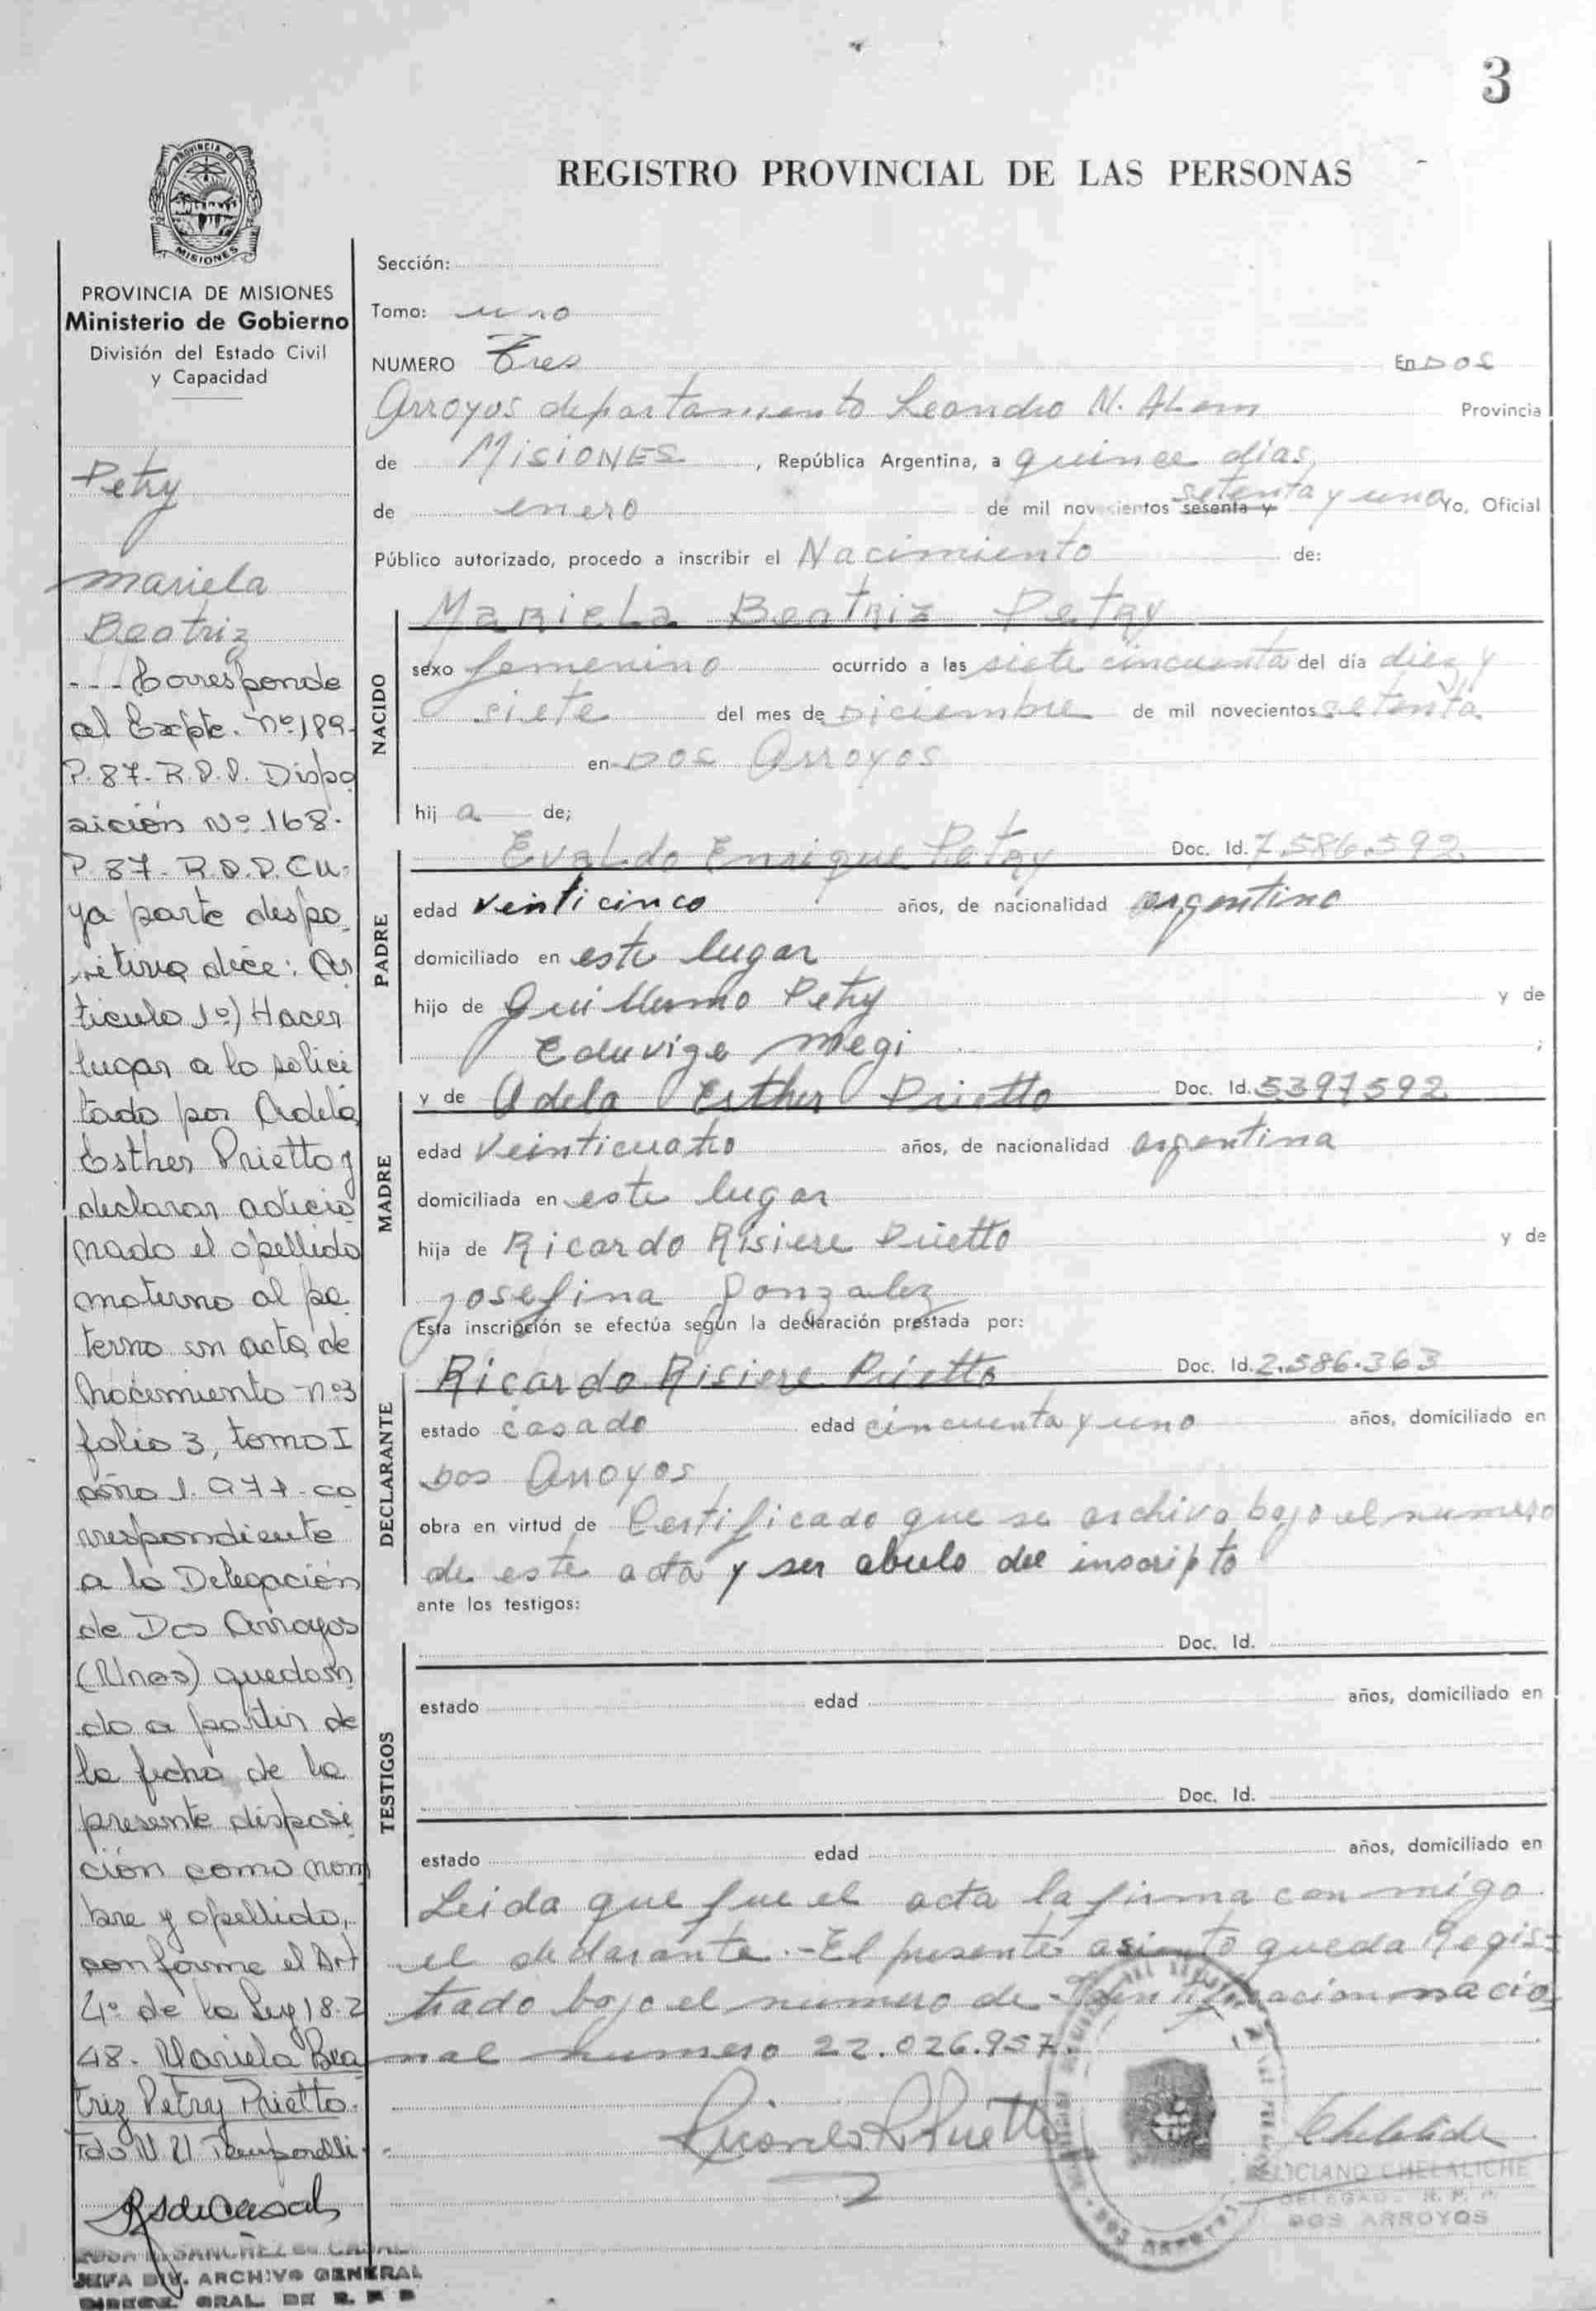 3
PROVINCIA DE
MISIONES
REGISTRO PROVINCIAL DE LAS PERSONAS
PROVINCIA DE MISIONES
Ministerio de Gobierno
División del Estado Civil
y Capacidad
Petry
Mariela
Beatriz
---Corresponde
al Expte. Nº 189-
P. 87-R.P.P. Dispo
sición Nº 168-
P. 87-R.P.P. Cu-
ya parte dispo
sitiva dice: Ar
ticulo 1º) Hacer
lugar a lo solici
tado por Adela
Esther Prietto y
declarar adicio
nado el apellido
materno al pa
terno en acta de
Nacimiento nº3
folio 3, tomo I
año 1.971-co
rrespondiente
a la Delegación
de Dos Arroyos
(Mnes) quedan
do a partir de
la fecha de la
presente disposi
ción como nom
bre y apellido,
conforme el Art
4º de la Ley 18.2
48- Mariela Bea
triz Petry Prietto.
JEFA DIV. ARCHIVO GENERAL
GRAL. DE R. P. P
Sección:
Tomo: uno
NUMERO Tres En DOS
Arroyos departamento Leandro N. ALem Provincia
de MISIONES, República Argentina, a quince días
de enero de mil novecientos sesenta y setenta y uno Yo, Oficial
Público autorizado, procedo a inscribir el Nacimiento de:
NACIDO
Mariela Beatriz Petry
sexo femenino ocurrido a las siete cincuenta del día diez y
siete del mes de Diciembre de mil novecientos setenta
en DOS Arroyos
hij a de;
PADRE
Evaldo Enrique Petry Doc. Id. 7.586.592
edad veinticinco años, de nacionalidad argentino
domiciliado en este lugar
hijo de Guillermo Petry y de
Eduvige Megi ;
MADRE
y de Adela Esther Prietto Doc. Id. 5397592
edad veinticuatro años, de nacionalidad argentina
domiciliada en este lugar
hija de Ricardo Risiere Prietto y de
Josefina Gonzalez
Esta inscripción se efectúa según la declaración prestada por:
DECLARANTE
Ricardo Risiere Prietto Doc. Id. 2.586.363
estado casado edad cincuenta y uno años, domiciliado en
Dos Arroyos
obra en virtud de Certificado que se archiva bajo el numero
de este acta y ser abulo del inscripto
ante los testigos:
TESTIGOS
Doc. Id.
estado edad años, domiciliado en
Doc. Id.
estado edad años, domiciliado en
Leida que fue el acta la firma conmigo
el declarante.-El presente asiento queda Regis-
trado bajo el numero de Identificacion nacio
nal numero 22.026.957.
Ricardo R Prietto
FELICIANO CHELALICHE
DELEGADO R. P. P.
DOS ARROYOS